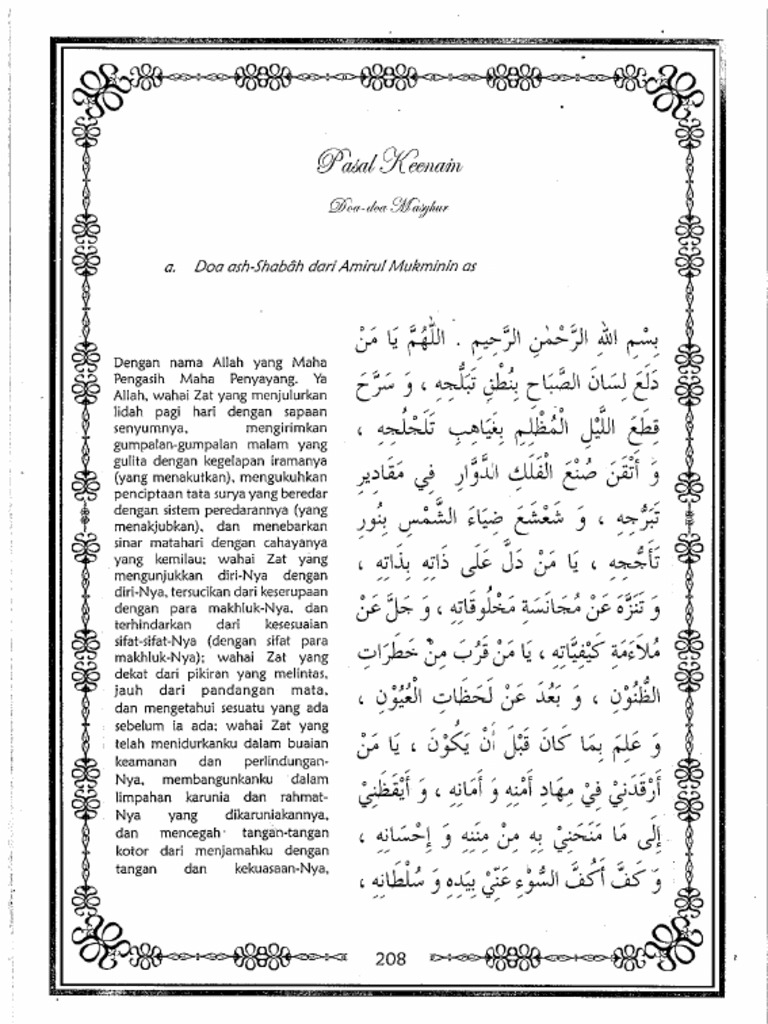 Pasal Keenam
Doa-doa Masyhur
a. Doa ash-Shabâh dari Amirul Mukminin as
Dengan nama Allah yang Maha
Pengasih Maha Penyayang. Ya
Allah, wahai Zat yang menjulurkan
lidah pagi hari dengan sapaan
senyumnya, mengirimkan
gumpalan-gumpalan malam yang
gulita dengan kegelapan iramanya
(yang menakutkan), mengukuhkan
penciptaan tata surya yang beredar
dengan sistem peredarannya (yang
menakjubkan), dan menebarkan
sinar matahari dengan cahayanya
yang kemilau; wahai Zat yang
mengunjukkan diri-Nya dengan
diri-Nya, tersucikan dari keserupaan
dengan para makhluk-Nya, dan
terhindarkan dari kesesuaian
sifat-sifat-Nya (dengan sifat para
makhluk-Nya); wahai Zat yang
dekat dari pikiran yang melintas,
jauh dari pandangan mata,
dan mengetahui sesuatu yang ada
sebelum ia ada; wahai Zat yang
telah menidurkanku dalam buaian
keamanan dan perlindungan-
Nya, membangunkanku dalam
limpahan karunia dan rahmat-
Nya yang dikaruniakannya,
dan mencegah tangan-tangan
kotor dari menjamahku dengan
tangan dan kekuasaan-Nya,
بِسْمِ اللهِ الرَّحْمٰنِ الرَّحِيمِ . اَللّٰهُمَّ يَا مَنْ
دَلَعَ لِسَانَ الصَّبَاحِ بِنُطْقِ تَبَلُّجِهِ ، وَ سَرَّحَ
قِطَعَ اللَّيْلِ الْمُظْلِمِ بِغَيَاهِبِ تَلَجْلُجِهِ ،
وَ أَتْقَنَ صُنْعَ الْفَلَكِ الدَّوَّارِ فِي مَقَادِيرِ
تَبَرُّجِهِ ، وَ شَعْشَعَ ضِيَاءَ الشَّمْسِ بِنُورِ
تَأَجُّجِهِ ، يَا مَنْ دَلَّ عَلَى ذَاتِهِ بِذَاتِهِ ،
وَ تَنَزَّهَ عَنْ مُجَانَسَةِ مَخْلُوقَاتِهِ ، وَ جَلَّ عَنْ
مُلَاءَمَةِ كَيْفِيَّاتِهِ ، يَا مَنْ قَرُبَ مِنْ خَطَرَاتِ
الظُّنُوْنِ ، وَ بَعُدَ عَنْ لَحَظَاتِ الْعُيُوْنِ ،
وَ عَلِمَ بِمَا كَانَ قَبْلَ أَنْ يَكُوْنَ ، يَا مَنْ
أَرْقَدَنِيْ فِيْ مِهَادِ أَمْنِهِ وَ أَمَانِهِ ، وَ أَيْقَظَنِيْ
إِلَى مَا مَنَحَنِيْ بِهِ مِنْ مِنَنِهِ وَ إِحْسَانِهِ ،
وَ كَفَّ أَكُفَّ السُّوْءِ عَنِّيْ بِيَدِهِ وَ سُلْطَانِهِ ،
208